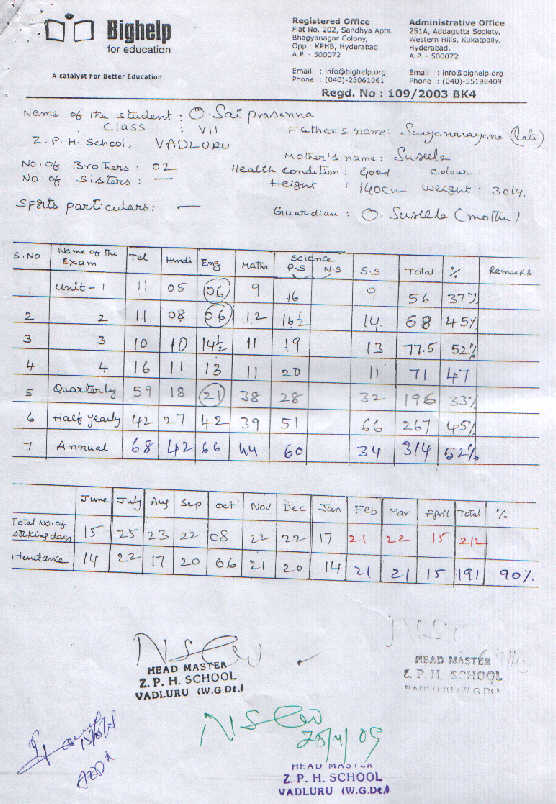 Bighelp
for education
A catalyst For Better Education
Registered Office
Flat No. 202, Sandhya Apts.
Bhagyanagar Colony,
Opp : KPHB, Hyderabad
A.P. - 500072
Email : info@bighelp.org
Phone : (040)-23061261
Administrative Office
251A, Addagutta Society,
Western Hills, Kukatpally,
Hyderabad.
A.P. - 500072
Email : info@bighelp.org
Phone : (040)-
Regd. No : 109/2003 BK4
Name of the student : O. Sai prasanna
Class : VII
Father's name: Suryanarayana (late)
Z. P. H. School, VADLURU
Mother's name : Suseela
No. of Brothers : 02
Health Condition : good colour
No of Sisters : —
Height : 140cm weight : 30
Sports particulars : —
Guardian : O. Suseela (mother)
S.NO Name of the Exam Tel Hindi Eng Maths Science P.S N.S S.S Total % Remarks
Unit - 1 11 05 06 9 16 0 56 37%
2 2 11 08 06 12 16½ 14 68 45%
3 3 10 10 14½ 11 19 13 77.5 52%
4 4 16 11 13 11 20 11 71 47
5 Quarterly 59 18 21 38 28 32 196 33%
6 Half yearly 42 27 42 39 51 66 267 45%
7 Annual 68 42 66 44 60 34 314 52%
June July Aug Sep Oct Nov Dec Jan Feb Mar April Total %
Total No. of working days 15 25 23 22 08 22 22 17 21 22 15 212
Attendance 14 22 17 20 06 21 20 14 21 21 15 191 90%
HEAD MASTER
Z. P. H. SCHOOL
VADLURU (W.G.Dt.)
HEAD MASTER
Z. P. H. SCHOOL
VADLURU (W.G.Dt.)
HEAD MASTER
Z. P. H. SCHOOL
VADLURU (W.G.Dt.)